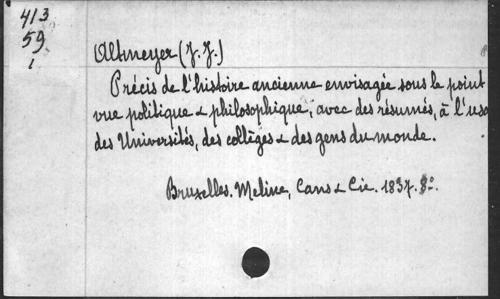 413
59
1
Altmeyer (J. J.)
Précis de l'histoire ancienne envisagée sous le point
vue politique & philosophique, avec des résumés, à l'usa
des Universités, des collèges & des gens du monde.
Bruxelles. Meline, Cans & Cie. 1837. 8º.